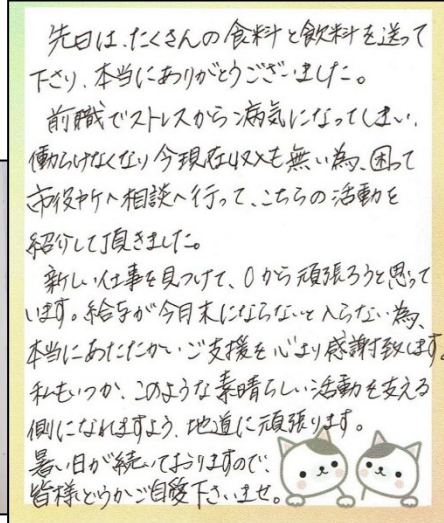 先日は、たくさんの食料と飲料を送って
下さり、本当にありがとうございました。
前職でストレスから病気になってしまい、
働らけなくなり今現在収入も無い為、困って
市役所へ相談へ行って、こちらの活動を
紹介して頂きました。
新しい仕事を見つけて、0から頑張ろうと思って
います。給与が今月末にならないと入らない為、
本当にあたたかいご支援を心より感謝致します。
私もいつか、このような素晴らしい活動を支える
側になれますよう、地道に頑張ります。
暑い日が続いておりますので、
皆様どうかご自愛下さいませ。